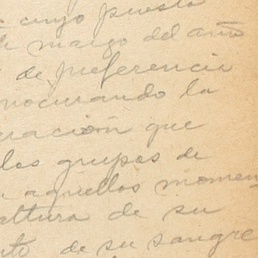 cuyo puesto
de marzo del año
de preferencia
procurando la
ración que
los grupos de
aquellos momen
altura de su
de su sangre